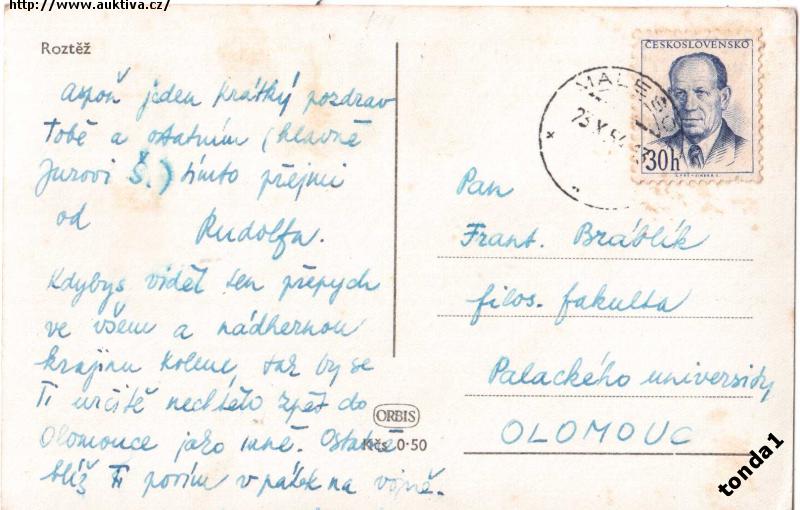 http://www.auktiva.cz/
Roztěž
Aspoň jeden krátký pozdrav
Tobě a ostatním (hlavně
Jurovi Š.) tímto přejmi
od Rudolfa.
Kdybys viděl ten přepych
ve všem a nádhernou
krajinu kolem, tak by se
Ti určitě nechtělo zpět do
Olomouce jako mně. Ostatně
blíž Ti povím v pátek na vojně.
ORBIS
Kčs 0·50
ČESKOSLOVENSKO
30h
MALEŠO
Pan
Frant. Bráblík
filos. fakulta
Palackého university
OLOMOUC
tonda1